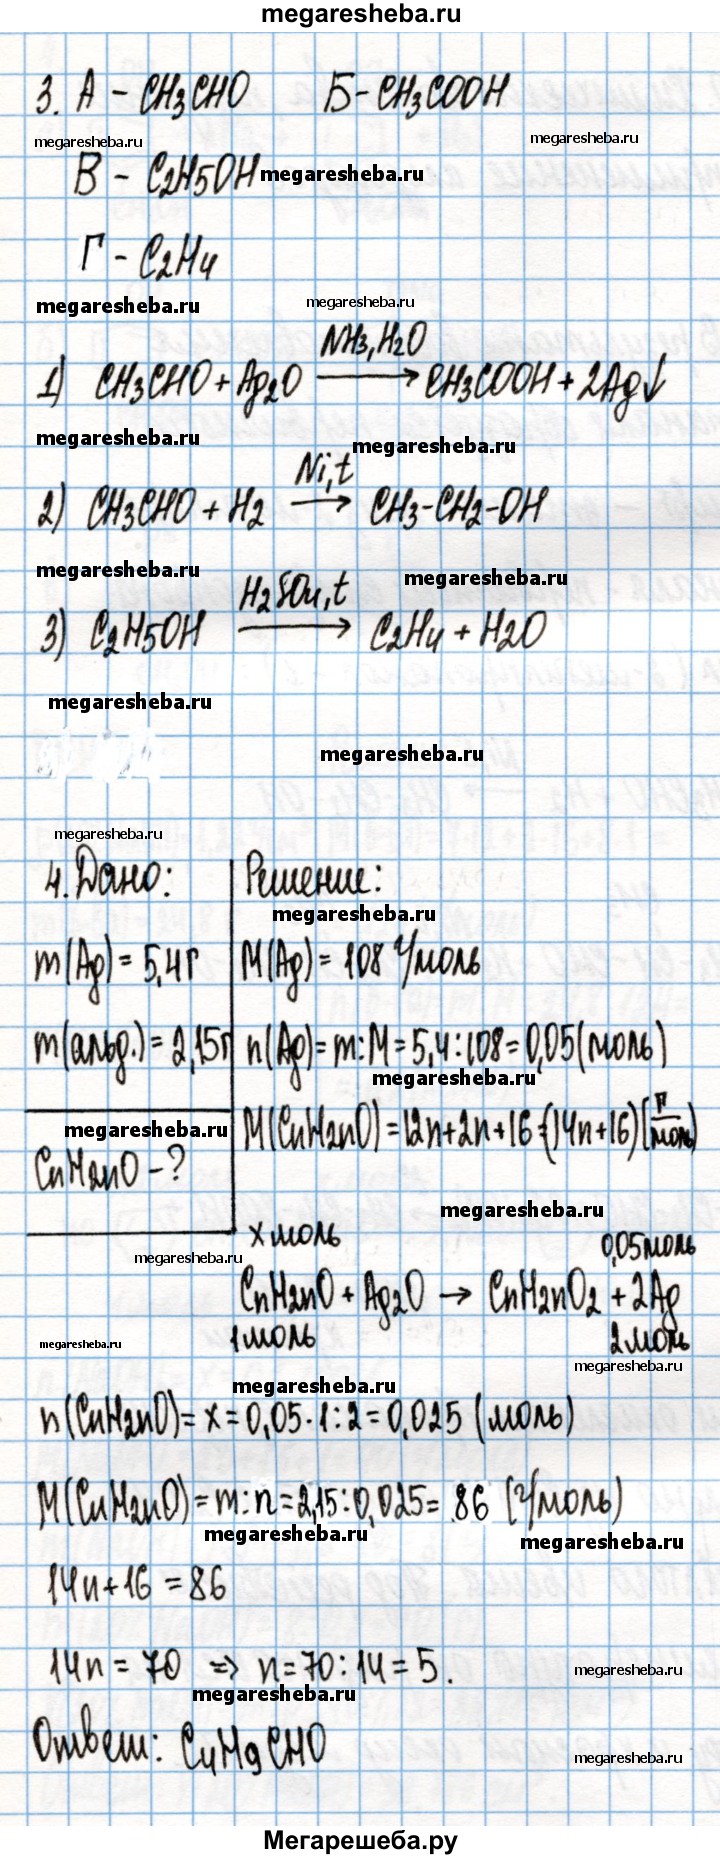 megaresheba.ru
3. А - CH3CHO Б - CH3COOH
megaresheba.ru megaresheba.ru
В - C2H5OH megaresheba.ru
Г - C2H4
megaresheba.ru megaresheba.ru
NH3, H2O
1) CH3CHO + Ag2O → CH3COOH + 2Ag↓
megaresheba.ru megaresheba.ru
Ni, t
2) CH3CHO + H2 → CH3-CH2-OH
megaresheba.ru megaresheba.ru
H2SO4, t
3) C2H5OH → C2H4 + H2O
megaresheba.ru
megaresheba.ru
megaresheba.ru
4. Дано: Решение:
megaresheba.ru
m(Ag) = 5,4г M(Ag) = 108 г/моль
m(альд.) = 2,15г n(Ag) = m:M = 5,4:108 = 0,05(моль)
megaresheba.ru
megaresheba.ru M(CnH2nO) = 12n+2n+16=(14n+16)(г/моль)
CnH2nO - ?
megaresheba.ru
x моль 0,05моль
megaresheba.ru
CnH2nO + Ag2O → CnH2nO2 + 2Ag
1моль 2моль
megaresheba.ru megaresheba.ru
megaresheba.ru
n(CnH2nO) = x = 0,05·1:2 = 0,025 (моль)
M(CnH2nO) = m:n = 2,15:0,025 = 86 (г/моль)
megaresheba.ru megaresheba.ru
14n+16 = 86
14n = 70 ⇒ n = 70:14 = 5.
megaresheba.ru megaresheba.ru
Ответ: C4H9CHO
megaresheba.ru
Мегарешеба.ру